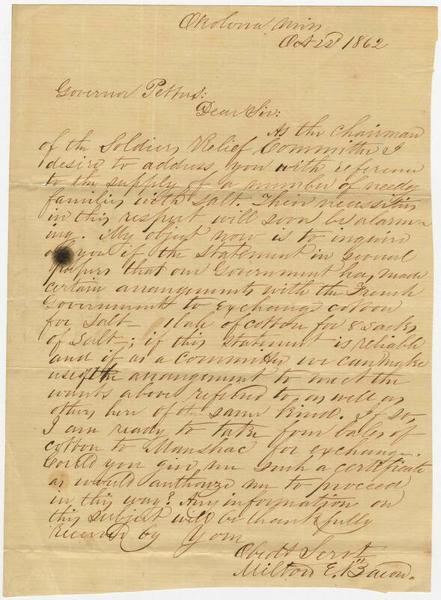 Okolona Miss
Oct 22d 1862
Governor Pettus:
Dear Sir:
As the Chairman
of the Soldiers Relief Committee I
desire to address you with reference
to the supply of a number of needy
families with salt. Their necessities
in this respect will soon be alarm-
ing. My object now is to inquire
of you if the statement in several
papers that our Government has made
certain arrangements with the French
Government to exchange cotton
for salt— 1 bale of cotton for 8 sacks
of salt—; if this statement is reliable
and if as a committee we can make
use of the arrangement to meet the
wants above referred to, as well as
others here of the same kind. If so,
I am ready to take four bales of
cotton to Manshac for exchange.
Could you give me such a certificate
as would authorize me to proceed
in this way? Any information on
this subject will be thankfully
received by your
Obedt Servt
Milton E. Bacon.